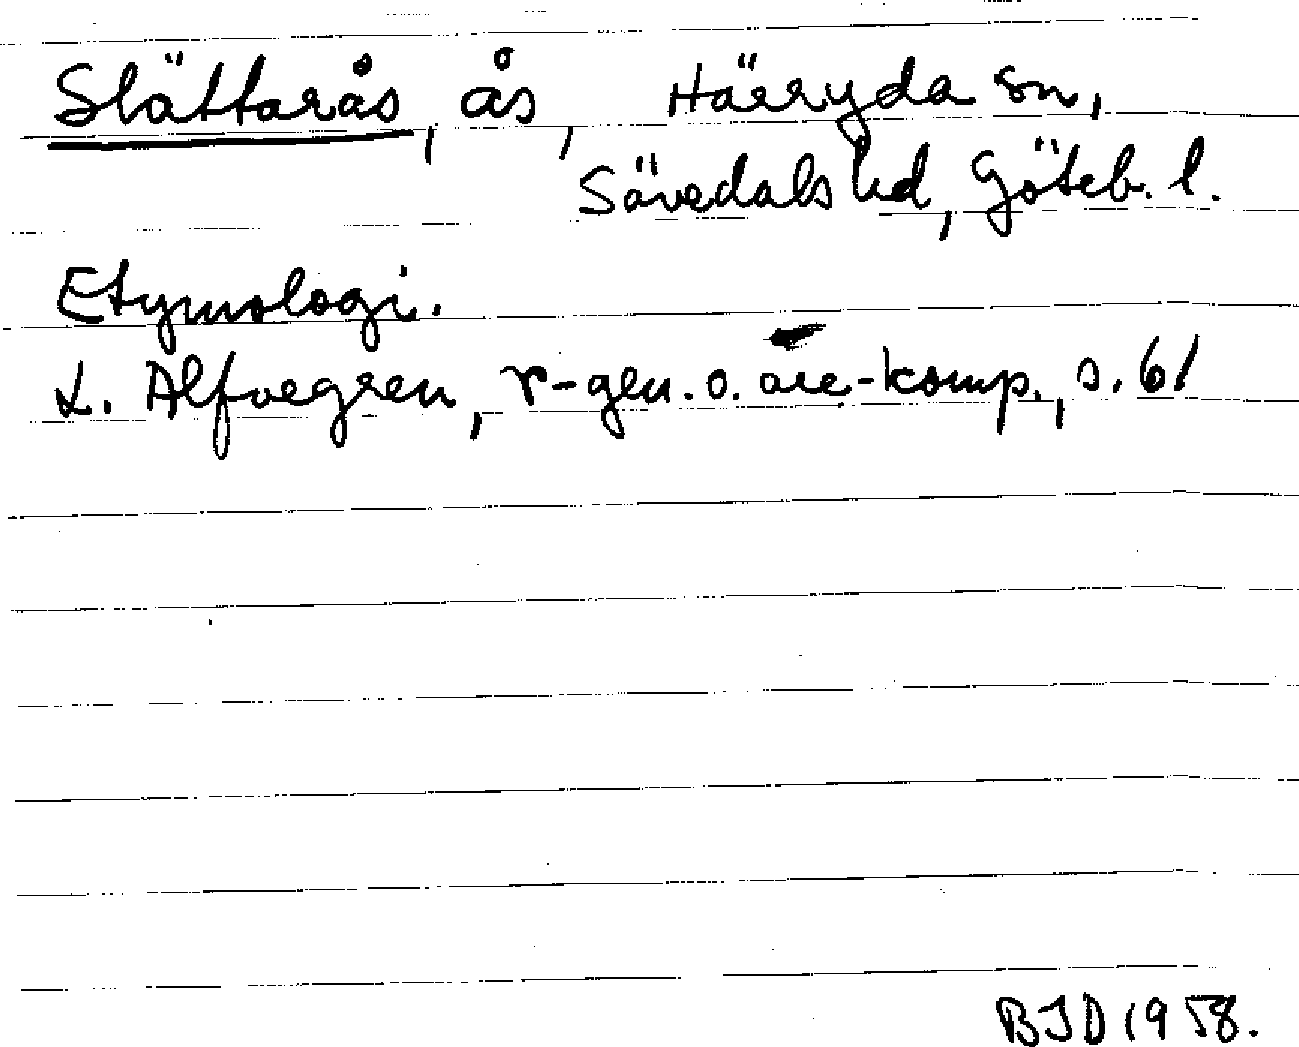 Slättarås, ås, Härryda sn,
Sävedals hd, Göteb. l.
Etymologi.
L. Alfvegren, r-gen. o. are-komp., s. 61
BJD 1958.